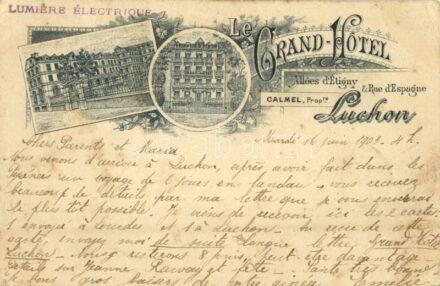 LUMIÈRE ÉLECTRIQUE
Le
GRAND-HÔTEL
Allées d'Étigny
& Rue d'Espagne
CALMEL, Propre
Luchon
Mardi 16 juin 1903 4h.
Chers Parents et Maria
Nous venons d'arriver à Luchon, après avoir fait dans les
un voyage de 6 jours en landau. vous recevrez
beaucoup de détails par ma lettre que je vous enverrai
le plus tôt possible. Je viens de recevoir ici les 2 cartes
1 envoyé à Lourdes et 1 à Luchon. Au reçu de cette
carte envoyez moi de suite longue lettre Grand Hotel
Luchon. Nous resterons 8 jours
détails sur Jeanne et fête.
bons gros baisers de votre